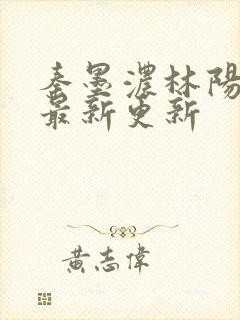 秦墨濃林陽
最新更新
黃志偉